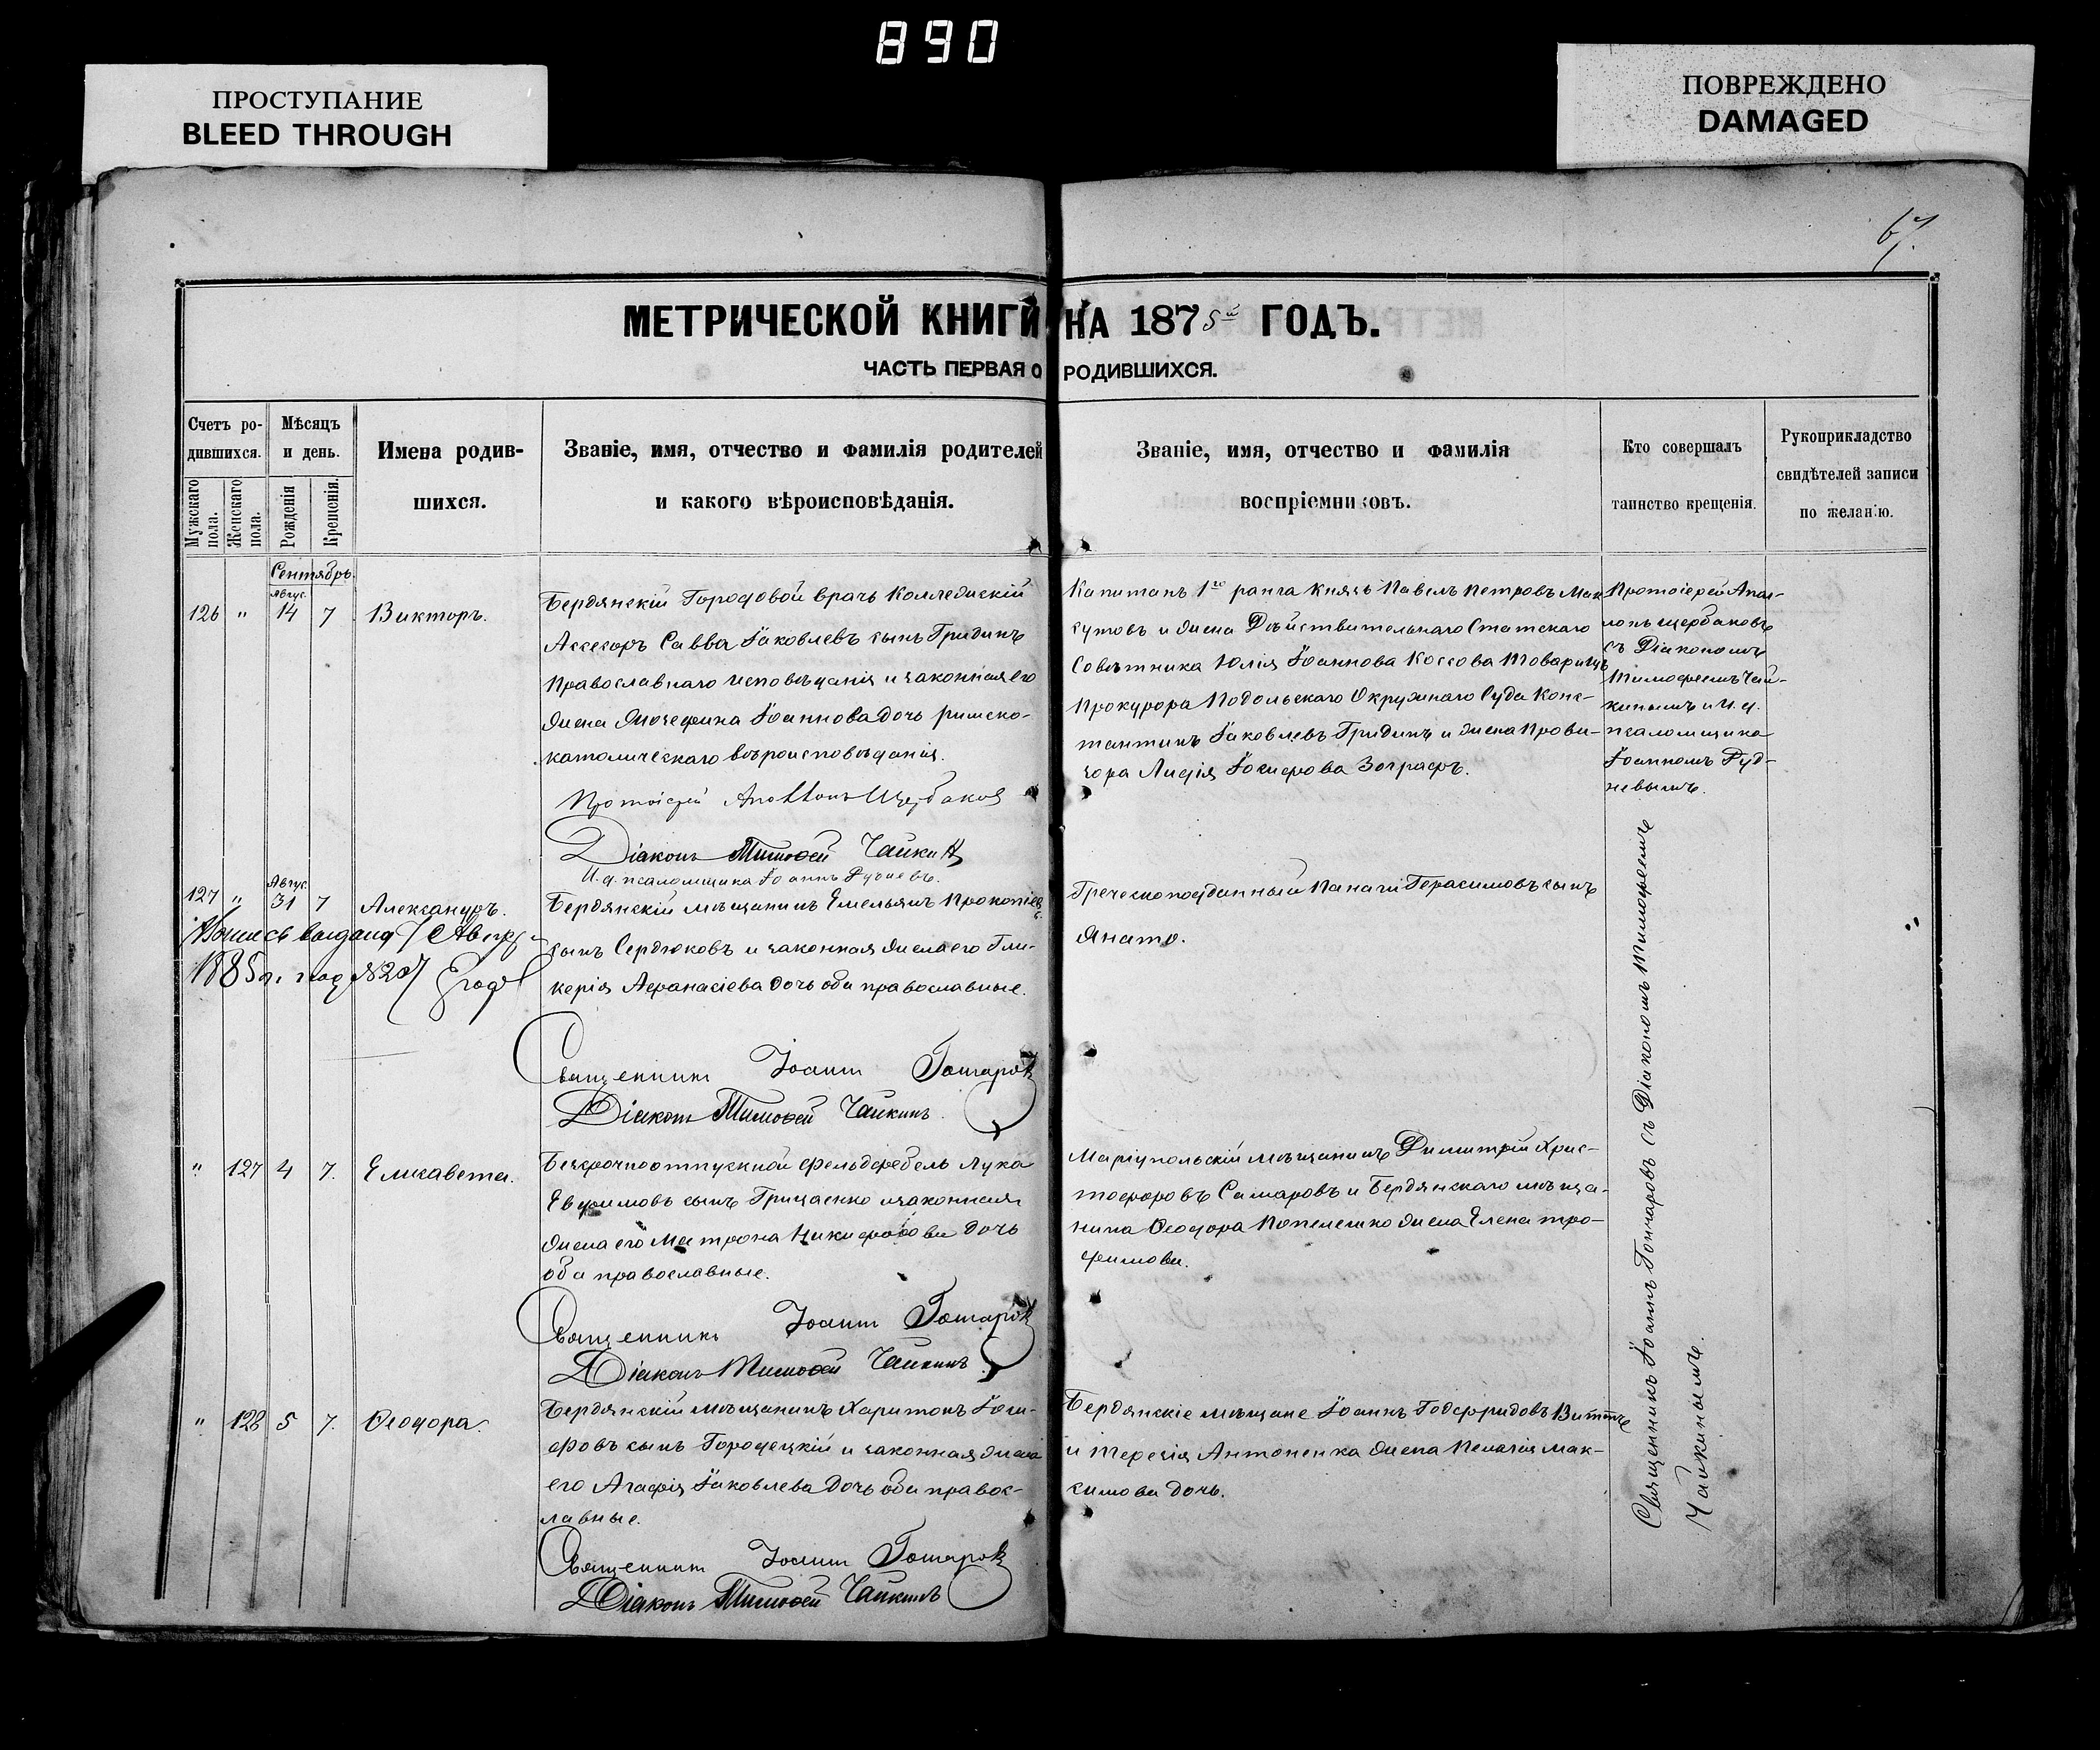 890
ПРОСТУПАНИЕ
BLEED THROUGH
ПОВРЕЖДЕНО
DAMAGED
67.
МЕТРИЧЕСКОЙ КНИГИ НА 1875й ГОДЪ.
ЧАСТЬ ПЕРВАЯ О РОДИВШИХСЯ.
Счетъ ро-
дившихся.
Мужскаго пола.
Женскаго пола.
Мѣсяцъ
и день.
Рожденія
Крещенія.
Имена родив-
шихся.
Званіе, имя, отчество и фамилія родителей
и какого вѣроисповѣданія.
Званіе, имя, отчество и фамилія
воспріемниковъ.
Кто совершалъ
таинство крещенія.
Рукоприкладство
свидѣтелей записи
по желанію.
Сентябрь.
Авгус.
126 " 14 7 Викторъ.
Бердянскій Городовой врачъ Коллежскій
Ассесоръ Савва Іаковлевъ сынъ Гридинъ
православнаго исповѣданія и законная его
жена Іозефина Іоаннова дочь римско-
католическаго вѣроисповѣданія.
Протоіерей Аполлонъ Щербаковъ
Діаконъ Тимоѳей Чайкинъ
И. д. псаломщика Іоаннъ Рудневъ.
Капитанъ 1го ранга Князь Павелъ Петровъ Мак-
сутовъ и жена Дѣйствительнаго Статскаго
Совѣтника Юлія Іоаннова Коссова Товарищъ
Прокурора Подольскаго Окружнаго Суда Конс-
тантинъ Іаковлевъ Гридинъ и жена Прови-
зора Лидія Іосифова Зографъ.
Протоіерей Апол-
лонъ Щербаковъ
съ Діакономъ
Тимофеемъ Чай-
кинымъ и И. д.
псаломщика
Іоанномъ Руд-
невымъ.
Авгус.
127 " 31 7 Александръ.
1885 г. под №207
Бердянскій мѣщанинъ Емельянъ Прокопіевъ
сынъ Сердюковъ и законная жена его Гли-
керія Афанасіева дочь оба православные.
Священникъ Іоаннъ Гончаровъ
Діаконъ Тимоѳей Чайкинъ.
Греческоподданный Панаги Герасимовъ сынъ
" 127 4 7. Елисавета.
Безсрочноотпускной фельдфебель Лука
Евфимовъ сынъ Грищенко и законная
жена его Матрона Никифорова дочь
оба православные.
Священникъ Іоаннъ Гончаровъ
Діаконъ Тимоѳей Чайкинъ
Маріупольскій мѣщанинъ Димитрій Хрис-
тофоровъ Самаровъ и Бердянскаго мѣща-
нина Ѳеодора Попелешко жена Елена Тро-
фимова.
" 128 5 7. Ѳеодора.
Бердянскій мѣщанинъ Харитонъ Іоси-
фовъ сынъ Городецкій и законная жена
его Агафія Іаковлева дочь оба правос-
лавные.
Священникъ Іоаннъ Гончаровъ
Діаконъ Тимоѳей Чайкинъ
Бердянскіе мѣщане Іоаннъ Годфридовъ Виттъ
и Терезія Антоненка жена Пелагія Мак-
симова дочь.
Священникъ Іоаннъ Гончаровъ съ Діакономъ Тимофеемъ
Чайкинымъ.